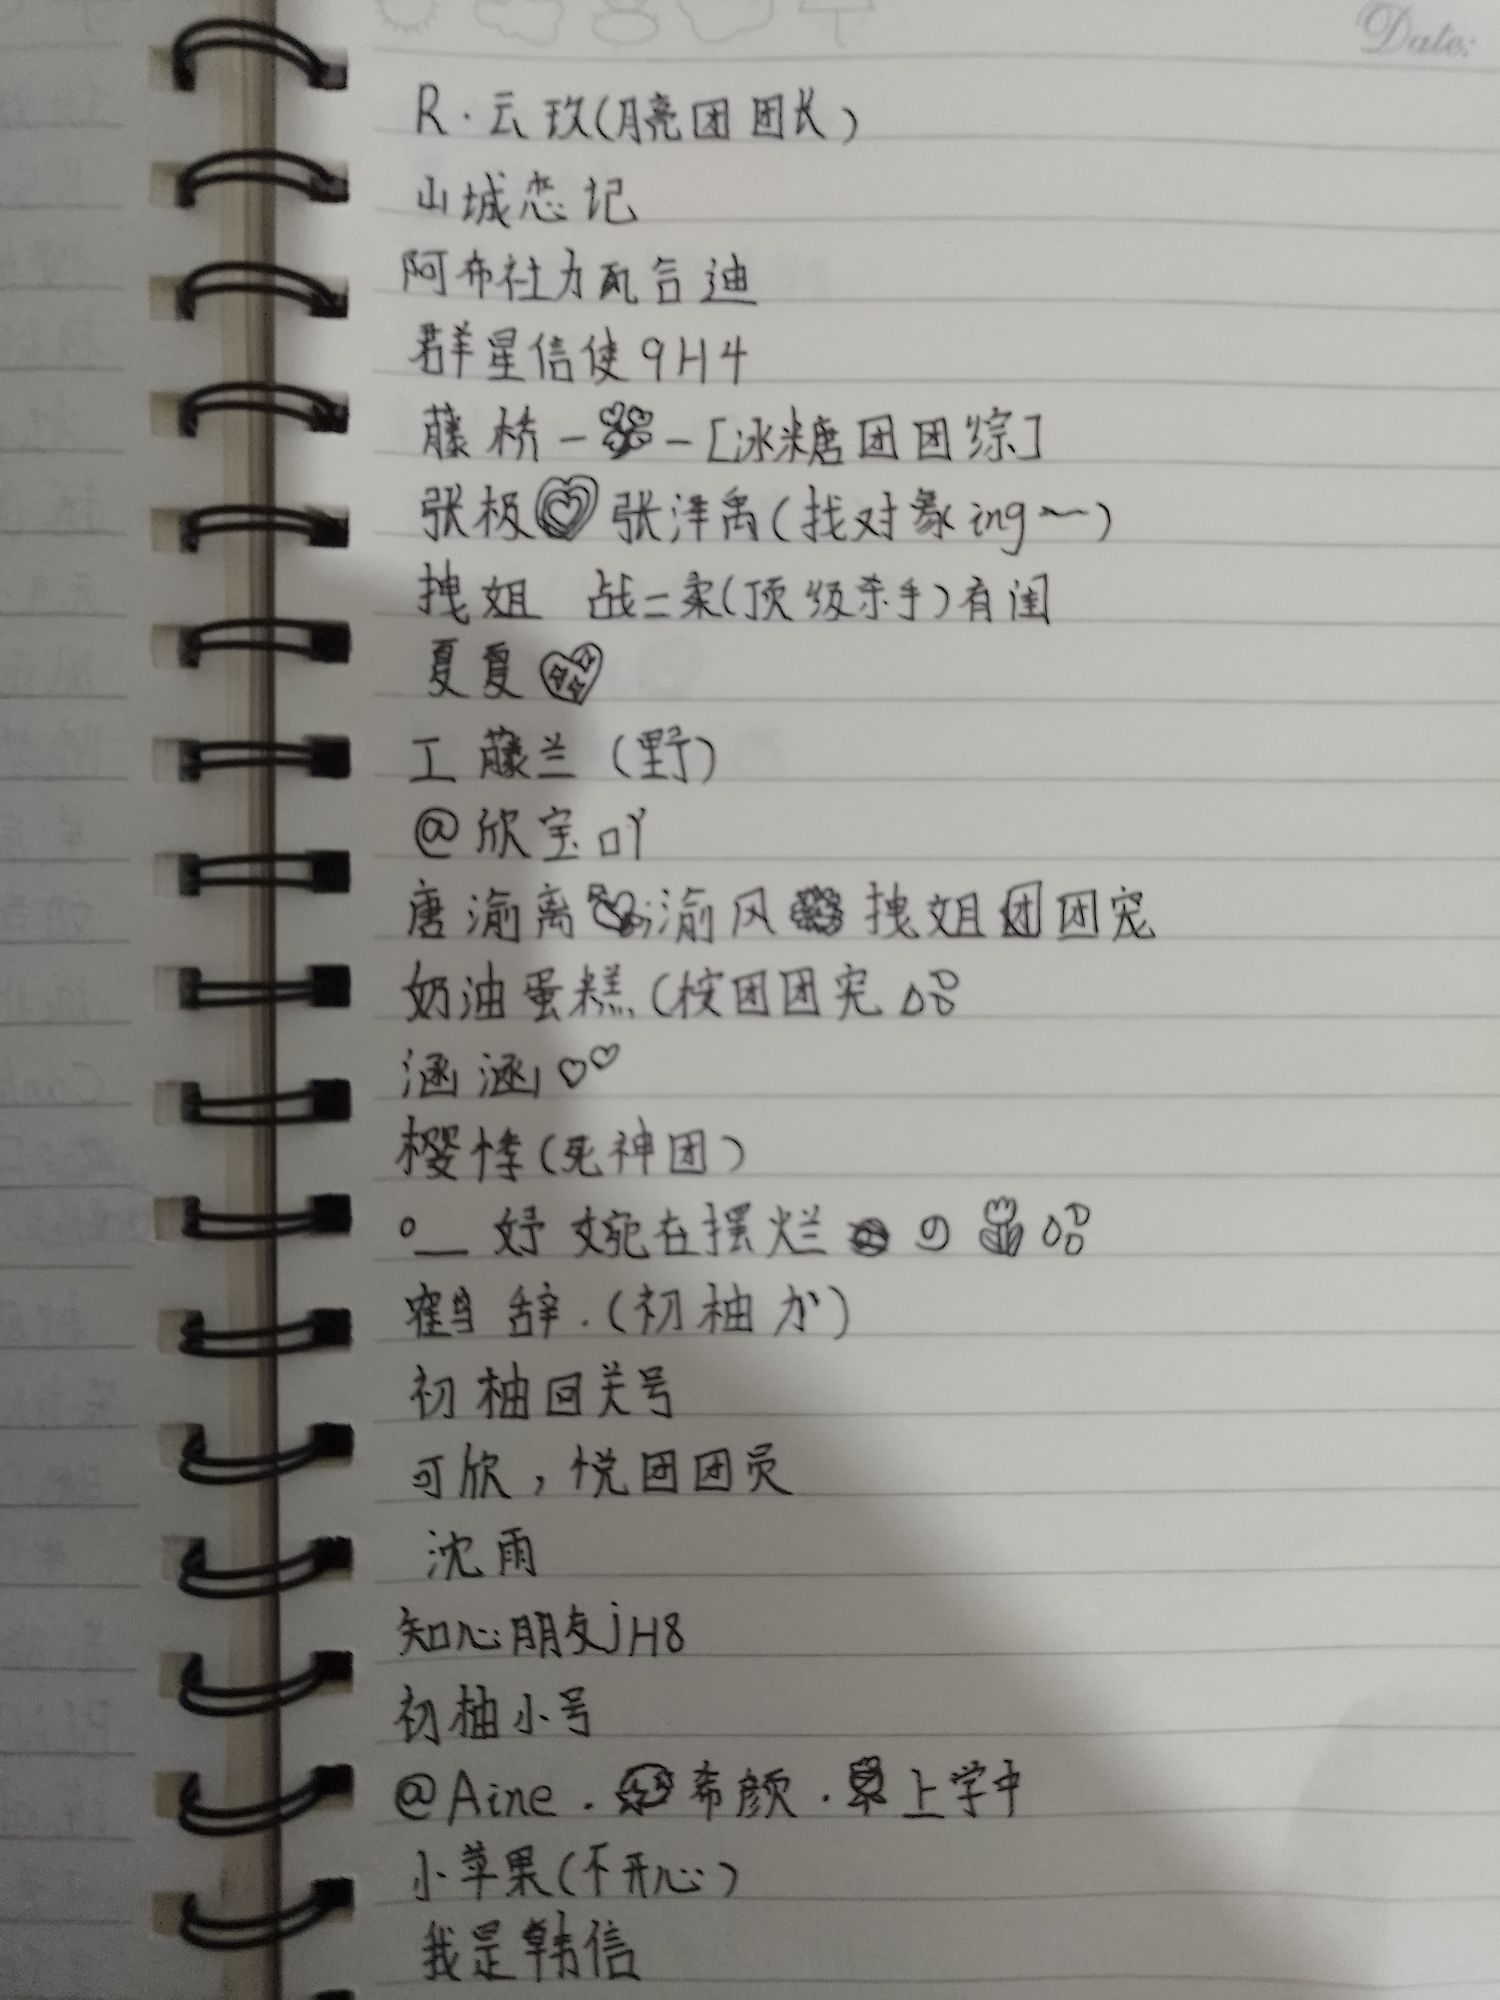 Date:
R·云玫(月亮团团长)
山城恋记
阿布社力瓦合迪
群星信使9H4
藤桥--[冰糖团团综]
张极 张泽禹(找对象ing~)
拽姐 战二柔(顶级杀手)有闺
夏夏
工藤兰(野)
@欣宝吖
唐渝离 渝风 拽姐团团宠
奶油蛋糕(桉团团宠
涵涵
樱悸(死神团)
°_ 妤婉在摆烂
鹤辞.(初柚か)
初柚回关号
可欣,悦团团员
沈雨
知心朋友jH8
初柚小号
@Aine. 希颜. 上学中
小苹果(不开心)
我是韩信